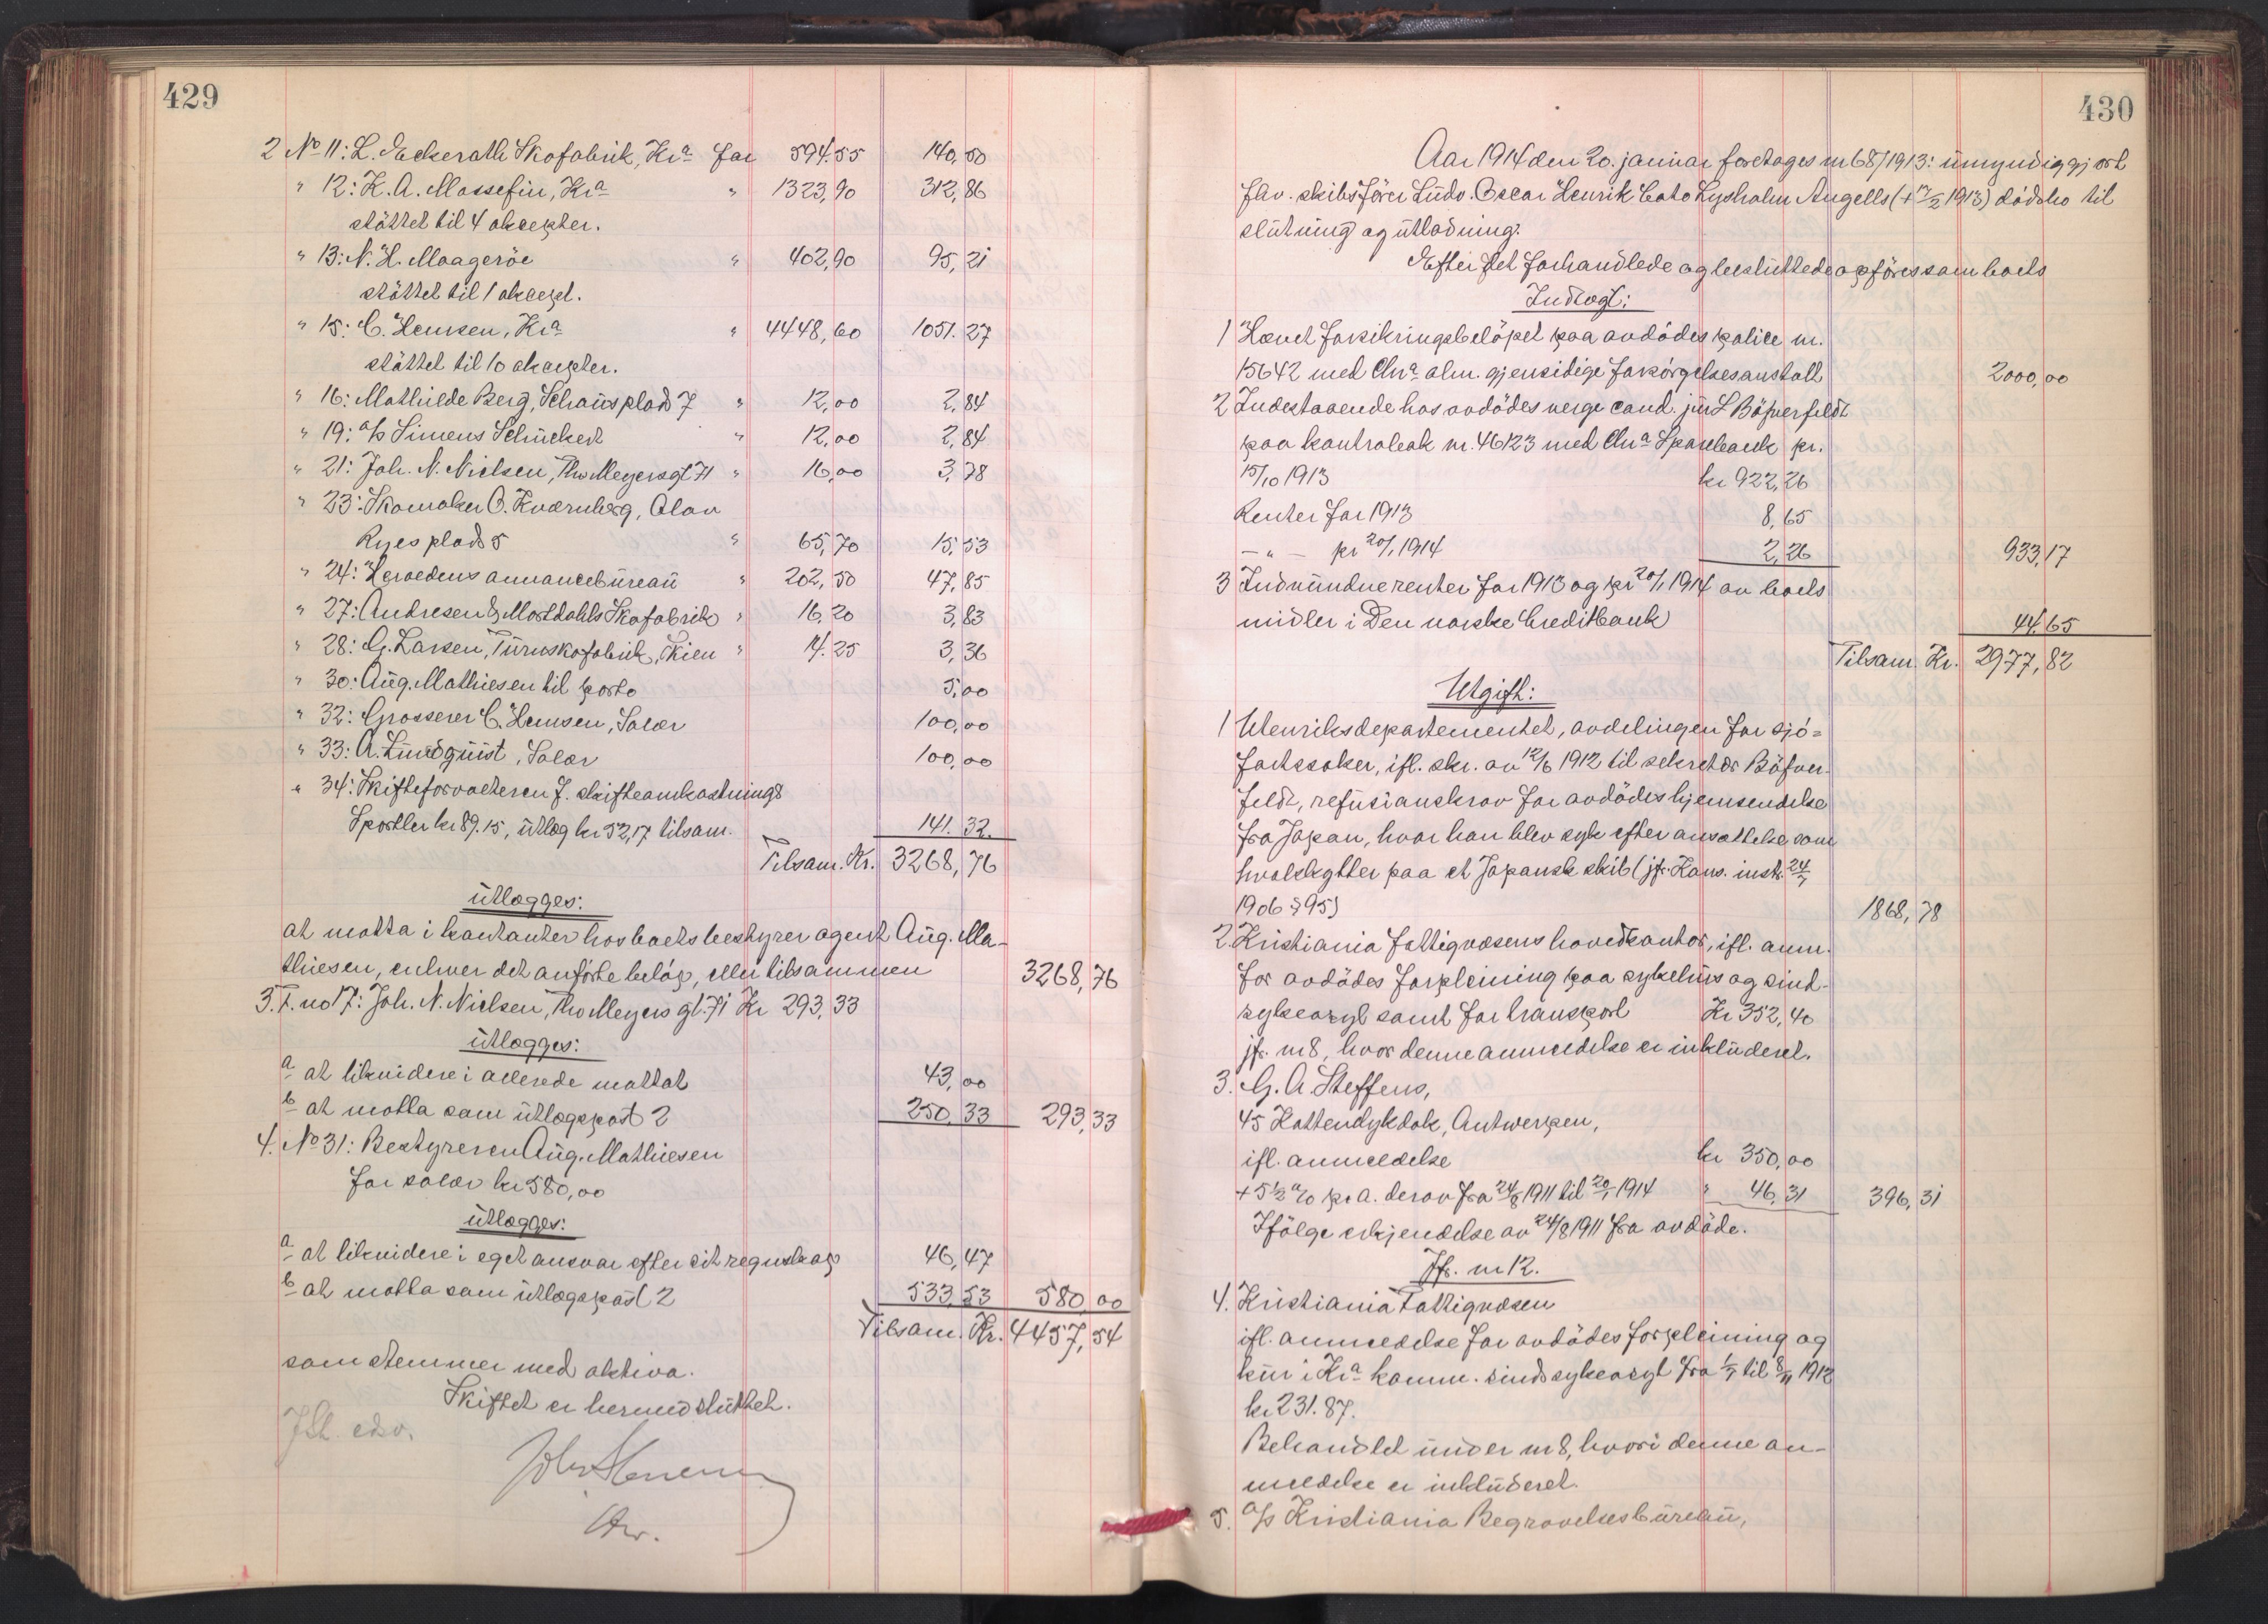 429
2 No 11: L. Eckerath Skofabrik, Kra for 594.55 140,50
" 12: K. A. Massefin, Kra " 1323,90 312,86
støttet til 4 aksepter.
" 13: N. H. Maagerøe " 402,90 95,21
støttet til 1 aksept.
" 15: C. Hemsen, Kra " 4448,60 1051.27
støttet til 10 aksepter.
" 16: Mathilde Berg, Schausplads 7 " 12,00 2,84
" 19: a/s Simens Schuckert " 12,00 2,84
" 21: Joh. N. Nielsen, Thv Meyersgt 71 " 16,00 3,78
" 23: Skomaker O. Kværnberg, Olav
Ryes plads 5 " 65,70 15,53
" 24: Hervedens annoncebureau " 202,50 47,85
" 27: Andresen & Mostdahls Skofabrik " 16,20 3,83
" 28: G. Larsen, Turnskofabrik, Skien " 14.25 3,36
" 30: Aug. Mathiesen til porto 5,00
" 32: Grosserer C. Hemsen, Salær 100,00
" 33: A. Lundquist, Salær 100,00
" 34: Skifteforvalteren f. skifteomkostninger
Sportler kr 89.15, utlæg kr 52,17 tilsam. 141.32
Tilsam. Kr. 3268,76
utlægges:
at motta i kontanter hos boets bestyrer agent Aug. Ma-
thiesen, enhver det anførte beløp, eller tilsammen 3268,76
3. F. no 17: Joh. N. Nielsen, Thv Meyers gt. 71 Kr 293,33
utlægges:
a at likvidere i allerede mottat 43,00
b at motta som utlægspost 2 250,33 293,33
4. No 31: Bestyreren Aug. Mathiesen
for salær kr 580,00
utlægges:
a at likvidere i eget ansvar efter sit regnskap 46,47
b at motta som utlægspost 2 533,53 580,00
Tilsam. Kr. 4457,54
som stemmer med aktiva.
Skiftet er hermed sluttet.
430
Aar 1914 den 20. januar foretages nr 68/1913: umyndiggjort
fhv. skibsfører Ludv. Oscar Henrik Cato Lysholm Angells (+ 17/2 1913) dødsbo til
slutning og utlodning.
Efter det forhandlede og besluttede opføres som boets
Indtægt:
1 Hævet forsikringsbeløpet paa avdødes police nr.
15642 med Chra alm. gjensidige forsørgelsesanstalt 2000,00
2 Indestaaende hos avdødes verge cand. jur L Bøfverfeldt
paa kontrabok nr. 46123 med Chra Sparebank pr.
15/10 1913 kr 922,26
Renter for 1913 8,65
— " — pr 20/1 1914 2,26 933,17
3 Indvundne renter for 1913 og pr 20/1 1914 av boets
midler i Den norske Creditbank 44,65
Tilsam. Kr. 2977,82
Utgift:
1 Utenriksdepartementet, avdelingen for sjø=
fartssaker, ifl. skr. av 12/6 1912 til sekretær Bøfver-
feldt, refusionskrav for avdødes hjemsendelse
fra Japan, hvor han blev syk efter ansættelse som
hvalskytter paa et Japansk skib (jfr. Kons. instr. 24/7
1906 § 95) 1868,78
2. Kristiania fattigvæsens hovedkontor, ifl. anm.
for avdødes forpleining paa sykehus og sind-
sykeasyl samt for transport Kr 352,40
jfr. nr 8, hvor denne anmeldelse er inkluderet.
3. G. A. Steffens,
45 Kattendykdok, Antwerpen,
ifl. anmeldelse kr 350,00
+ 5½ % pr a. derav fra 24/8 1911 til 20/1 1914 " 46,31 396,31
Ifølge erkjendelse av 24/8 1911 fra avdøde.
Jfr. nr 12.
4. Kristiania Fattigvæsen
ifl. anmeldelse for avdødes forpleining og
kur i Kra komm. sindssykeasyl fra 1/7 til 8/11 1912
kr 231.87.
Behandlet under nr 8, hvori denne an-
meldelse er inkluderet.
5. a/s Kristiania Begravelsesbureau,